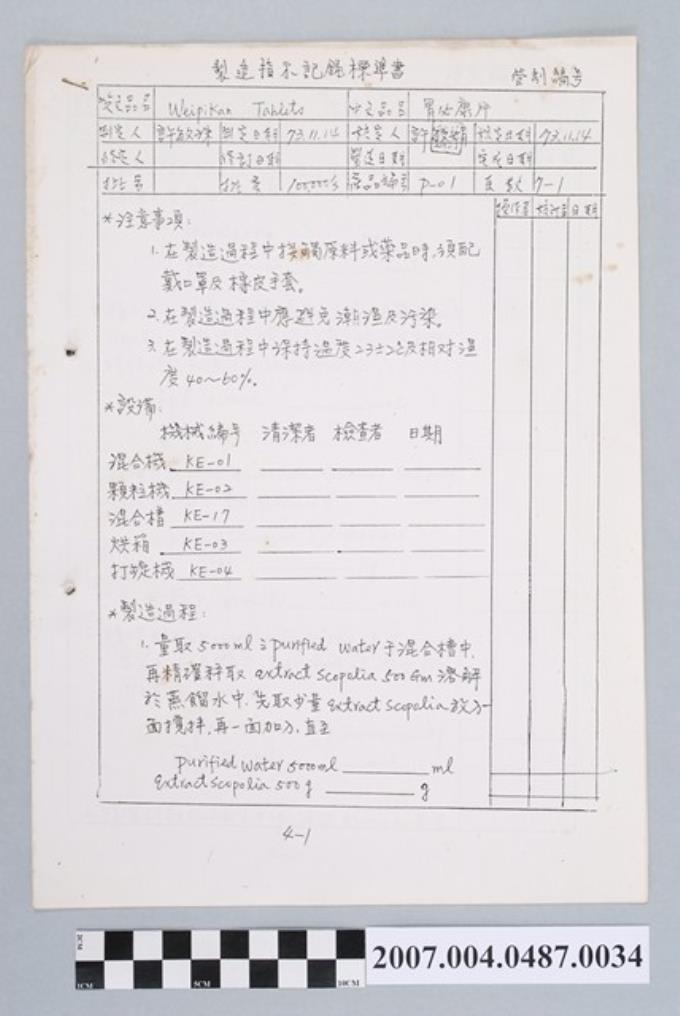 製造指示記錄標準書
管制編号
英文品名 Weipikan Tablets 中文品名 胃必康片
制定人 許 制定日期 73.11.14 核定人 許 核定日期 73.11.14
修定人 修訂日期 製造日期 完成日期
批号 批量 100,000's 產品編号 P-01 頁數 7-1
操作者 核對者 日期
*注意事項:
1.在製造過程中接觸原料或藥品時,須配
戴口罩及橡皮手套。
2.在製造過程中應避免潮溼及污染。
3.在製造過程中保持溫度23±2℃及相對溼
度40~60%。
*設備:
機械編号 清潔者 檢查者 日期
混合機 KE-01
顆粒機 KE-02
混合槽 KE-17
烘箱 KE-03
打錠機 KE-04
*製造過程:
1.量取5000ml之purified water于混合槽中,
再精確秤取extract scopolia 500Gm溶解
於蒸餾水中,先取少量extract scopolia放入一
面攪拌,再一面加入,直至
purified water 5000ml ml
Extract scopolia 500g g
4-1
2CM
1CM 5CM 10CM
2007.004.0487.0034